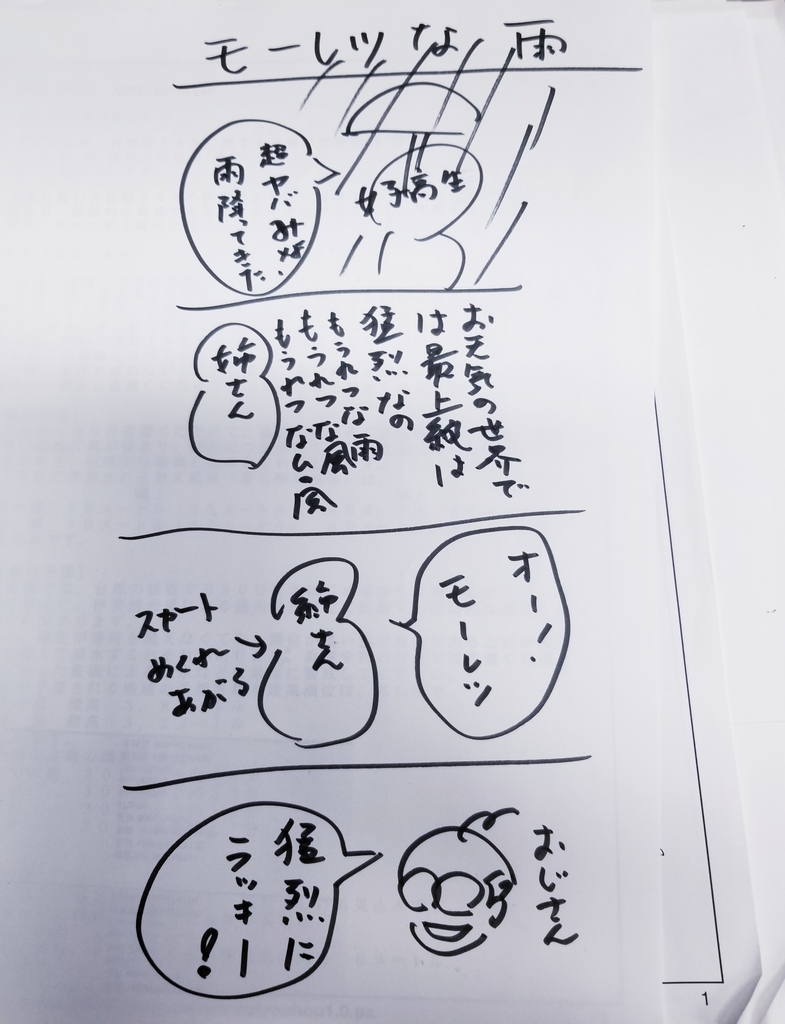 モーレツな雨
超ヤバみな
雨降ってきた
女子高生
お天気の世界で
は最上級は
猛烈なの
もうれつな雨
もうれつな風
もうれつな
姉さん
オー!
モーレツ
姉さん
スカート
めくれ
あがる
おじさん
猛烈に
ラッキー
!
1